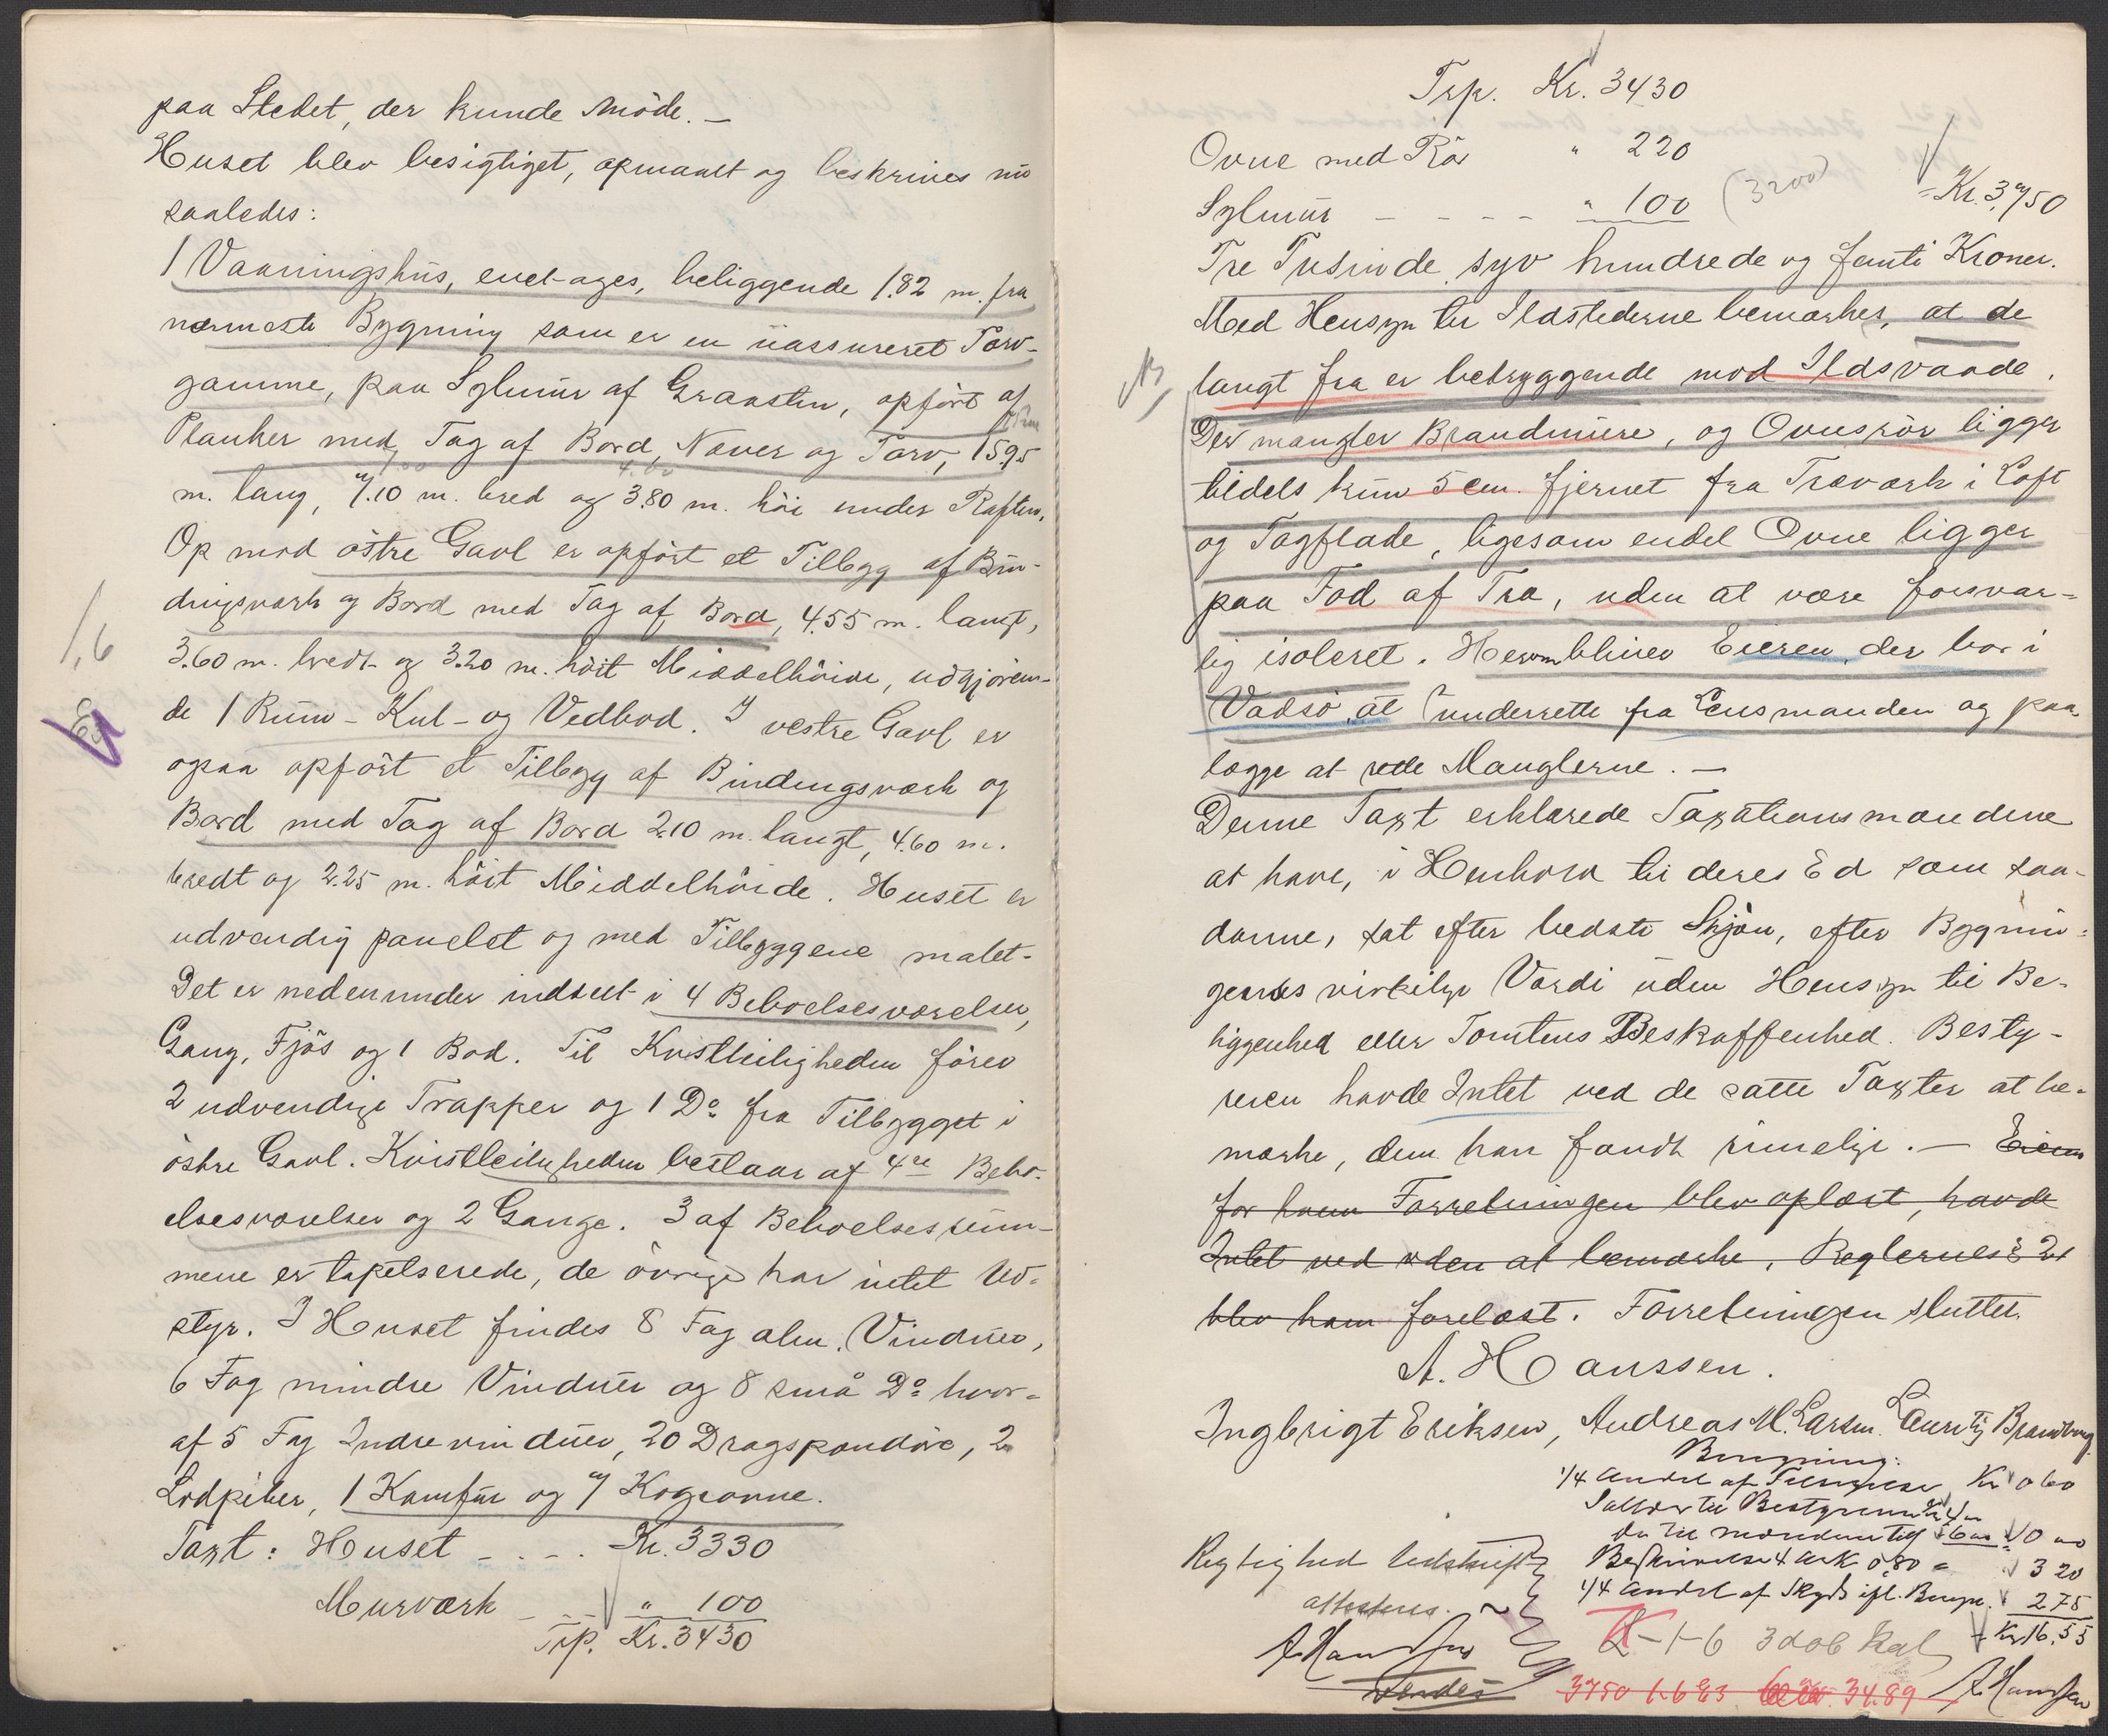 paa Stedet, der kunde møde. —
Huset blev besigtiget, opmaalt og beskrives nu
saaledes:
1 Vaaningshus, enetages, beliggende 1.82 m. fra
nærmeste Bygning som er en uassureret Torv-
gamme, paa Sylmur af Graasten, opført af
Planker med Tag af Bord, Næver og Torv, 15.95
m. lang, 7.10 m. bred og 3.80 m. høi under Raften.
4.60
Op mod østre Gavl er opført et Tilbygg af Bin-
dingsværk og Bord med Tag af Bord, 4.55 m. langt,
1,6
3.60 m. bredt og 3.20 m. høit Middelhøide, udgjøren-
de 1 Rum - Kul- og Vedbod. I vestre Gavl er
ogsaa opført et Tilbygg af Bindingsværk og
Bord med Tag af Bord 2.10 m. langt, 4.60 m.
bredt og 2.25 m. høit Middelhøide. Huset er
udvendig panelet og med Tilbyggene malet.
Det er nedenunder indseet i 4 Beboelsesværelser,
Gang, Fjøs og 1 Bod. Til Kvistleiligheden fører
2 udvendige Trapper og 1 Do fra Tilbygget i
østre Gavl. Kvistleiligheden bestaar af 4re Bebo-
elsesværelser og 2 Gange. 3 af Beboelsesrum-
mene er tapetserede, de øvrige har intet Ud-
styr. I Huset findes 8 Fag alm. Vinduer,
6 Fag mindre Vinduer og 8 små Do hvor-
af 5 Fag Indrevinduer, 20 Dragspandøre, 2
Lodpiber, 1 Komfur og 7 Kogeovne.
Taxt: Huset - - - . Kr. 3330
Murværk - - - " 100
Trp. Kr. 3430
Trp. Kr. 3430
Ovne med Rør " 220
Sylmur - - - - " 100 (3200) = Kr. 3,750
Tre Tusinde syv hundrede og femti Kroner.
Med Hensyn til Ildstederne bemærkes, at de
langt fra er betryggende mod Ildsvaade.
Der mangler Brandmure, og Ovnsrør ligger
tildels kun 5 cm. fjernet fra Træværk i Loft
og Tagflade, ligesom endel Ovne ligger
paa Fod af Træ, uden at være forsvar-
lig isoleret. Herom bliver Eieren, der bor i
Vadsø, at underrette fra Lensmanden og paa
lægge at rette Manglerne. —
Denne Taxt erklærede Taxationsmændene
at have, i Henhold til deres Ed som saa-
danne, sat efter bedste Skjøn, efter Bygnin-
gernes virkelige Værdi uden Hensyn til Be-
liggenhed eller Tomtens Beskaffenhed. Besty-
reren havde Intet ved de satte Taxter at be-
mærke, dem han fandt rimelige. — Eieren
for hvem Forretningen blev oplæst, havde
Intet ved den at bemærke. Reglernes § 21
blev ham forelæst. Forretningen sluttet.
A. Hanssen.
Ingbrigt Eriksen, Andreas M. Larsen. Lauritz Brandberg.
Beregning:
1/4 Andel af Tilsigelse Kr 0 60
do til mændene tils 6 00 10 00
Beskrivelse 4 Ark à 0,80 = 3 20
1/4 Andel af Skyds ifl. Beregn. 2 75
Kr 16.55
Rigtighed Udskrift
attesteres.
A Hanssen
Vendes
1-6
3750 1.6 34.89 A Hanssen